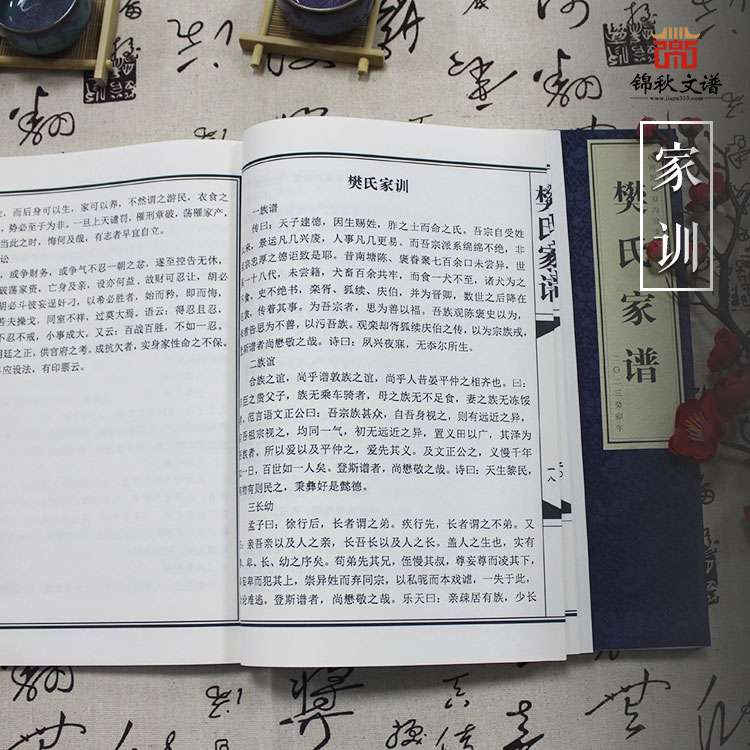 锦秋文谱
www.jiapu315.com
家训
樊氏家谱
二〇二三癸卯年
之，而后身可以生，家可以养，不然谓之游民，衣食之
，势必至于为非。一旦上天谴罚，罹刑章破，荡罹家产，
当此之时，悔何及哉，有志者早宜自立。
讼
，或争财务，或争气不忍一朝之忿，遂至控告无休，
破荡家资，亡身及亲，设亦何益，故财可让忍，胡必
胡必斗彼妄逞奸刁，以希必胜者，始而矜，即而悔，
若夫操戈，同室不祥，过莫大焉，语云：得忍且忍，
不忍不戒，小事成大，又云：百战百胜，不如一忍。
明廷之正，供官府之考。成抗欠者，实身家性命之不保。
早应设法，有印票云。
樊氏家训
一族谱
传曰：天子建德，因生赐姓，胙之士而命之氏。吾宗自受姓
以来，景运凡几兴废，人事凡几更易。而吾宗派系绵绵不绝，非
忠厚之德讵致是耶。昔南塘陈、褒眷聚七百余口未尝异，世
一十八代，未尝籍，犬畜百余共牢，而食一犬不至，诸犬为之
不食，史不绝书，栾胥、狐续、庆伯，并为晋卿，数世之后降在
皂隶，传着其事。为吾宗者，思为善以福。吾族观陈褒史以为，
者告思为不善，以污吾族。观栾却胥狐续庆伯之传，以为宗族戒，
登斯谱者尚懋敬之哉。诗曰：夙兴夜寐，无忝尔所生。
二族谊
合族之谊，尚乎谱敦族之谊，尚乎人昔晏平仲之相齐也。曰：
臣之贵父子，族无乘车骑者，母之族无不足食，妻之族无冻馁
者。范言语文正公曰：吾宗族甚众，自吾身视之，则有远近之异，
吾祖宗视之，均同一气，初无远近之异，置义田以广，其泽为
族者，所以爱以及平仲之，爱先其义。及文正公之，义慢千年
如一日，百世如一人矣。登斯谱者，尚懋敬之哉。诗曰：天生黎民，
有物有则民之，秉彝好是懿德。
三长幼
孟子曰：徐行后，长者谓之弟。疾行先，长者谓之不弟。又
曰：亲吾亲以及人之亲，长吾长以及人之长。盖人之生也，实有
尊、卑、长、幼之序矣。苟弟先其兄，侄慢其叔，尊妄尊而凌其下，
卑妄卑而犯其上，崇异姓而弃同宗，以私昵而本戏谑，一失于此，
公论难逃。登斯谱者，尚懋敬之哉。乐天曰：亲疎居有族，少长
樊氏家谱
一八